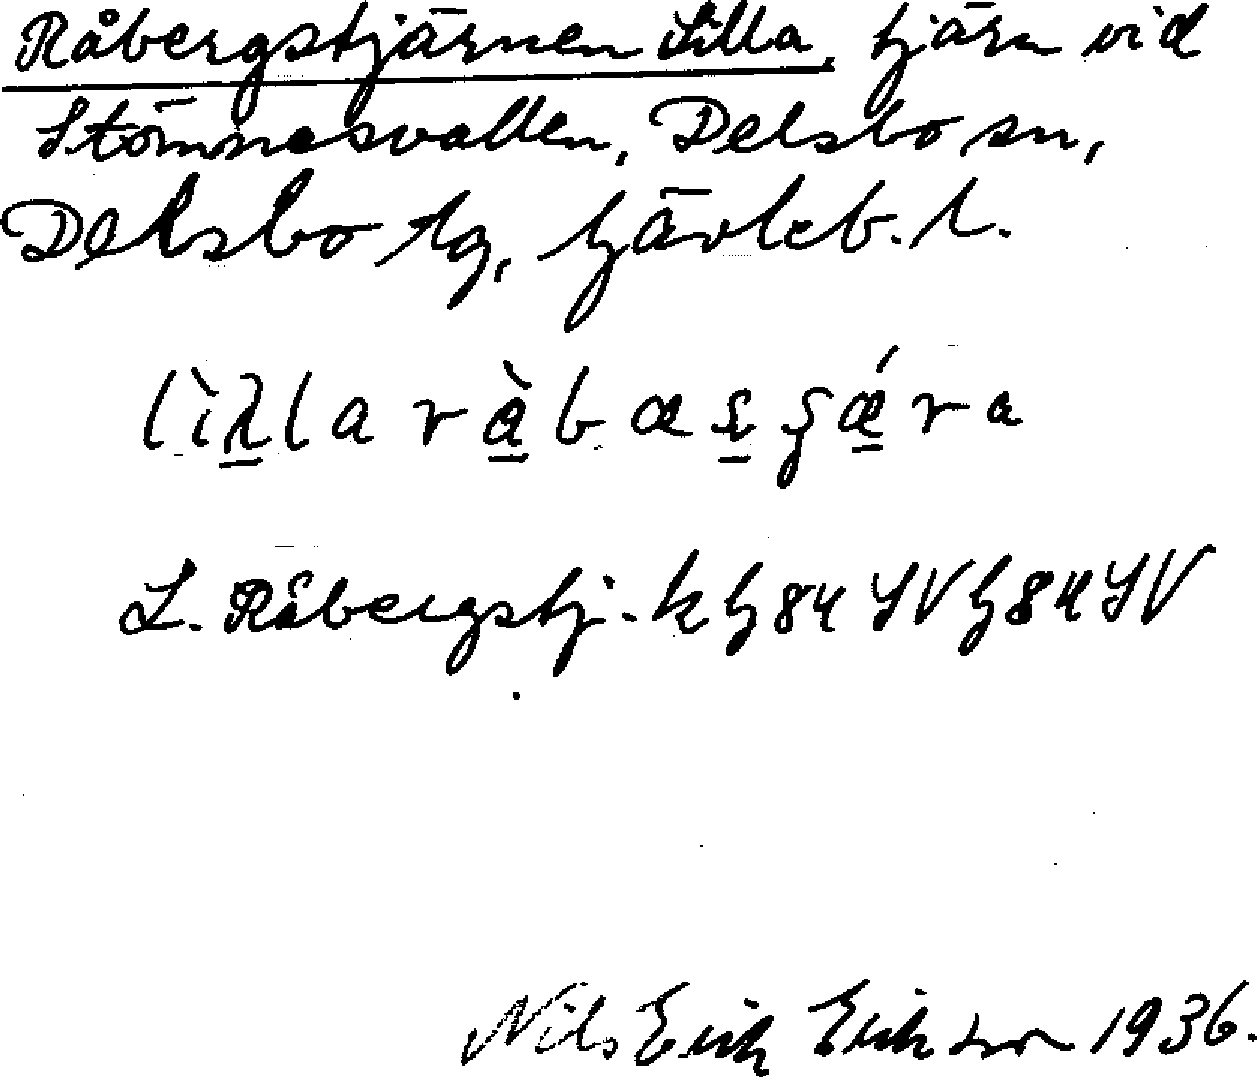 Råbergstjärnen Lilla, tjärn vid
Stömnesvallen, Delsbo sn,
Delsbo tg, Gävleb. l.
lìlla ràbæʂʂǽra
L. Råbergstj. k G84SV G84SV
Nils Erik Erikson 1936.